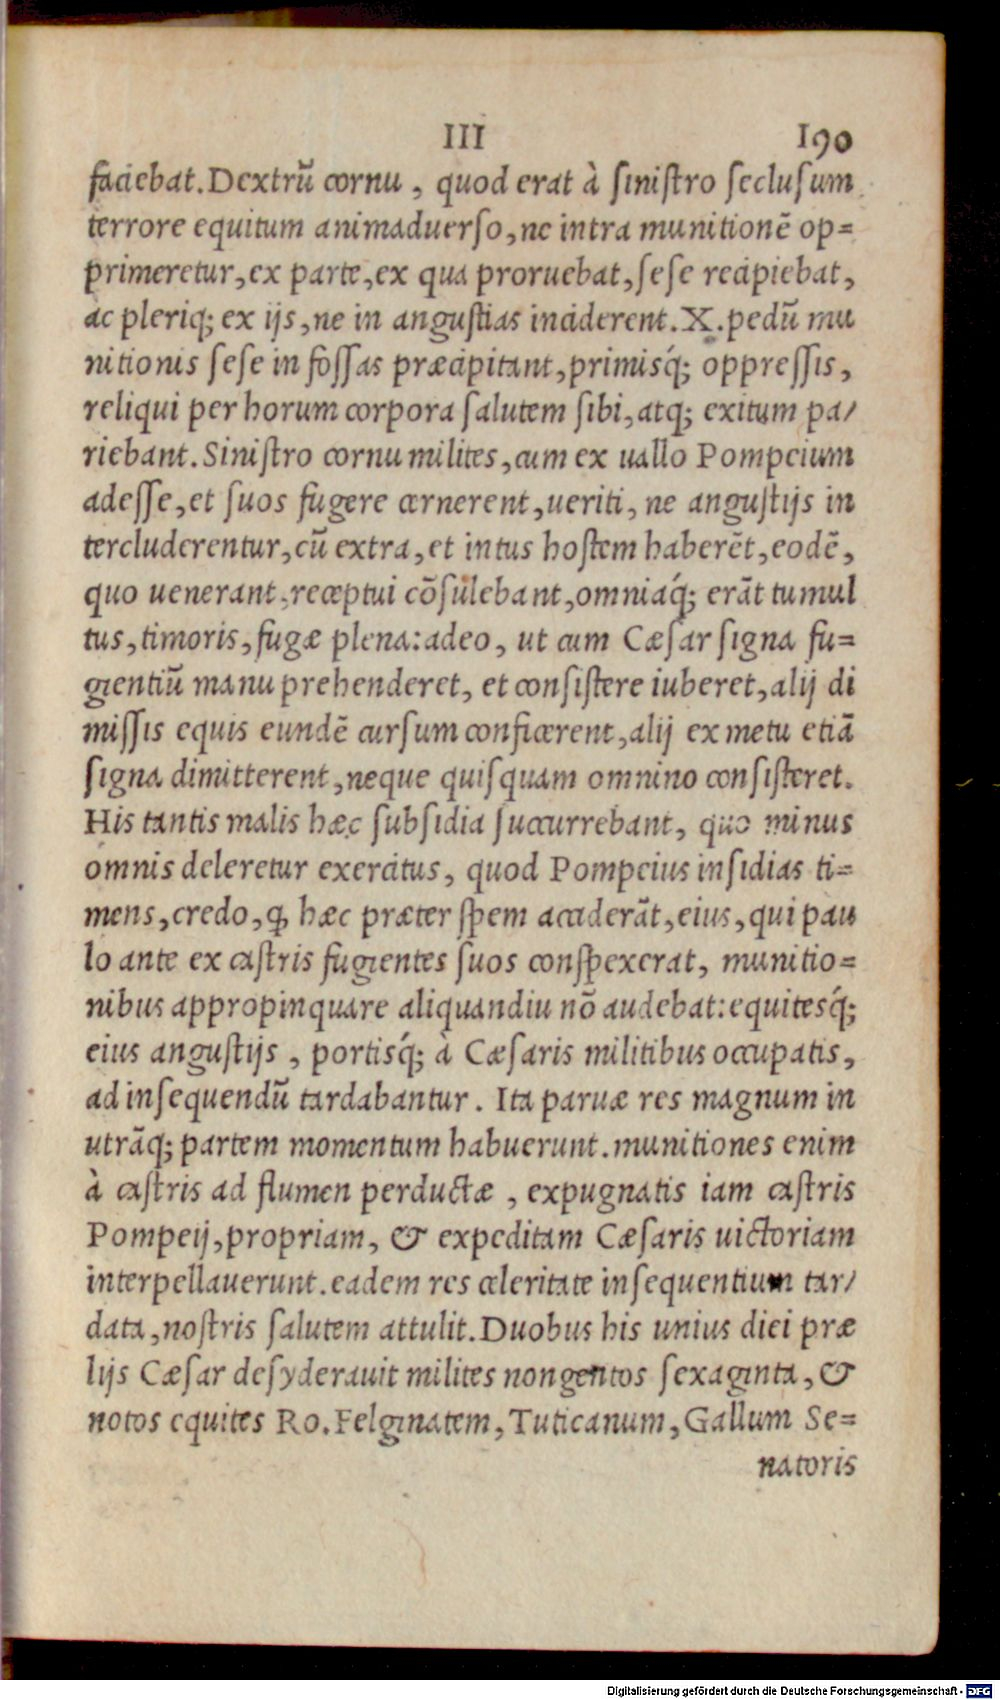 III 190
faciebat. Dextrũ cornu, quod erat à sinistro seclusum
terrore equitum animaduerso, ne intra munitionẽ op=
primeretur, ex parte, ex qua proruebat, sese recipiebat,
ac pleriq; ex ijs, ne in angustias inciderent. X. pedũ mu
nitionis sese in fossas præcipitant, primisq́; oppressis,
reliqui per horum corpora salutem sibi, atq; exitum pa/
riebant. Sinistro cornu milites, cum ex uallo Pompeium
adesse, et suos fugere cernerent, ueriti, ne angustijs in
tercluderentur, cũ extra, et intus hostem haberẽt, eodẽ,
quo uenerant, receptui cõsulebant, omniaq́; erãt tumul
tus, timoris, fugæ plena: adeo, ut cum Cæsar signa fu=
gientiũ manu prehenderet, et consistere iuberet, alij di
missis equis eundẽ cursum conficerent, alij ex metu etiã
signa dimitterent, neque quisquam omnino consisteret.
His tantis malis hæc subsidia succurrebant, quo minus
omnis deleretur exercitus, quod Pompeius insidias ti=
mens, credo, ꝙ hæc præter spem acciderãt, eius, qui pau
lo ante ex castris fugientes suos conspexerat, munitio=
nibus appropinquare aliquandiu nõ audebat: equitesq́;
eius angustijs, portisq́; à Cæsaris militibus occupatis,
ad insequendũ tardabantur. Ita paruæ res magnum in
utrãq; partem momentum habuerunt. munitiones enim
à castris ad flumen perductæ, expugnatis iam castris
Pompeij, propriam, & expeditam Cæsaris uictoriam
interpellauerunt. eadem res celeritate insequentium tar/
data, nostris salutem attulit. Duobus his unius diei præ
lijs Cæsar desyderauit milites nongentos sexaginta, &
notos equites Ro. Felginatem, Tuticanum, Gallum Se=
natoris
Digitalisierung gefördert durch die Deutsche Forschungsgemeinschaft - DFG